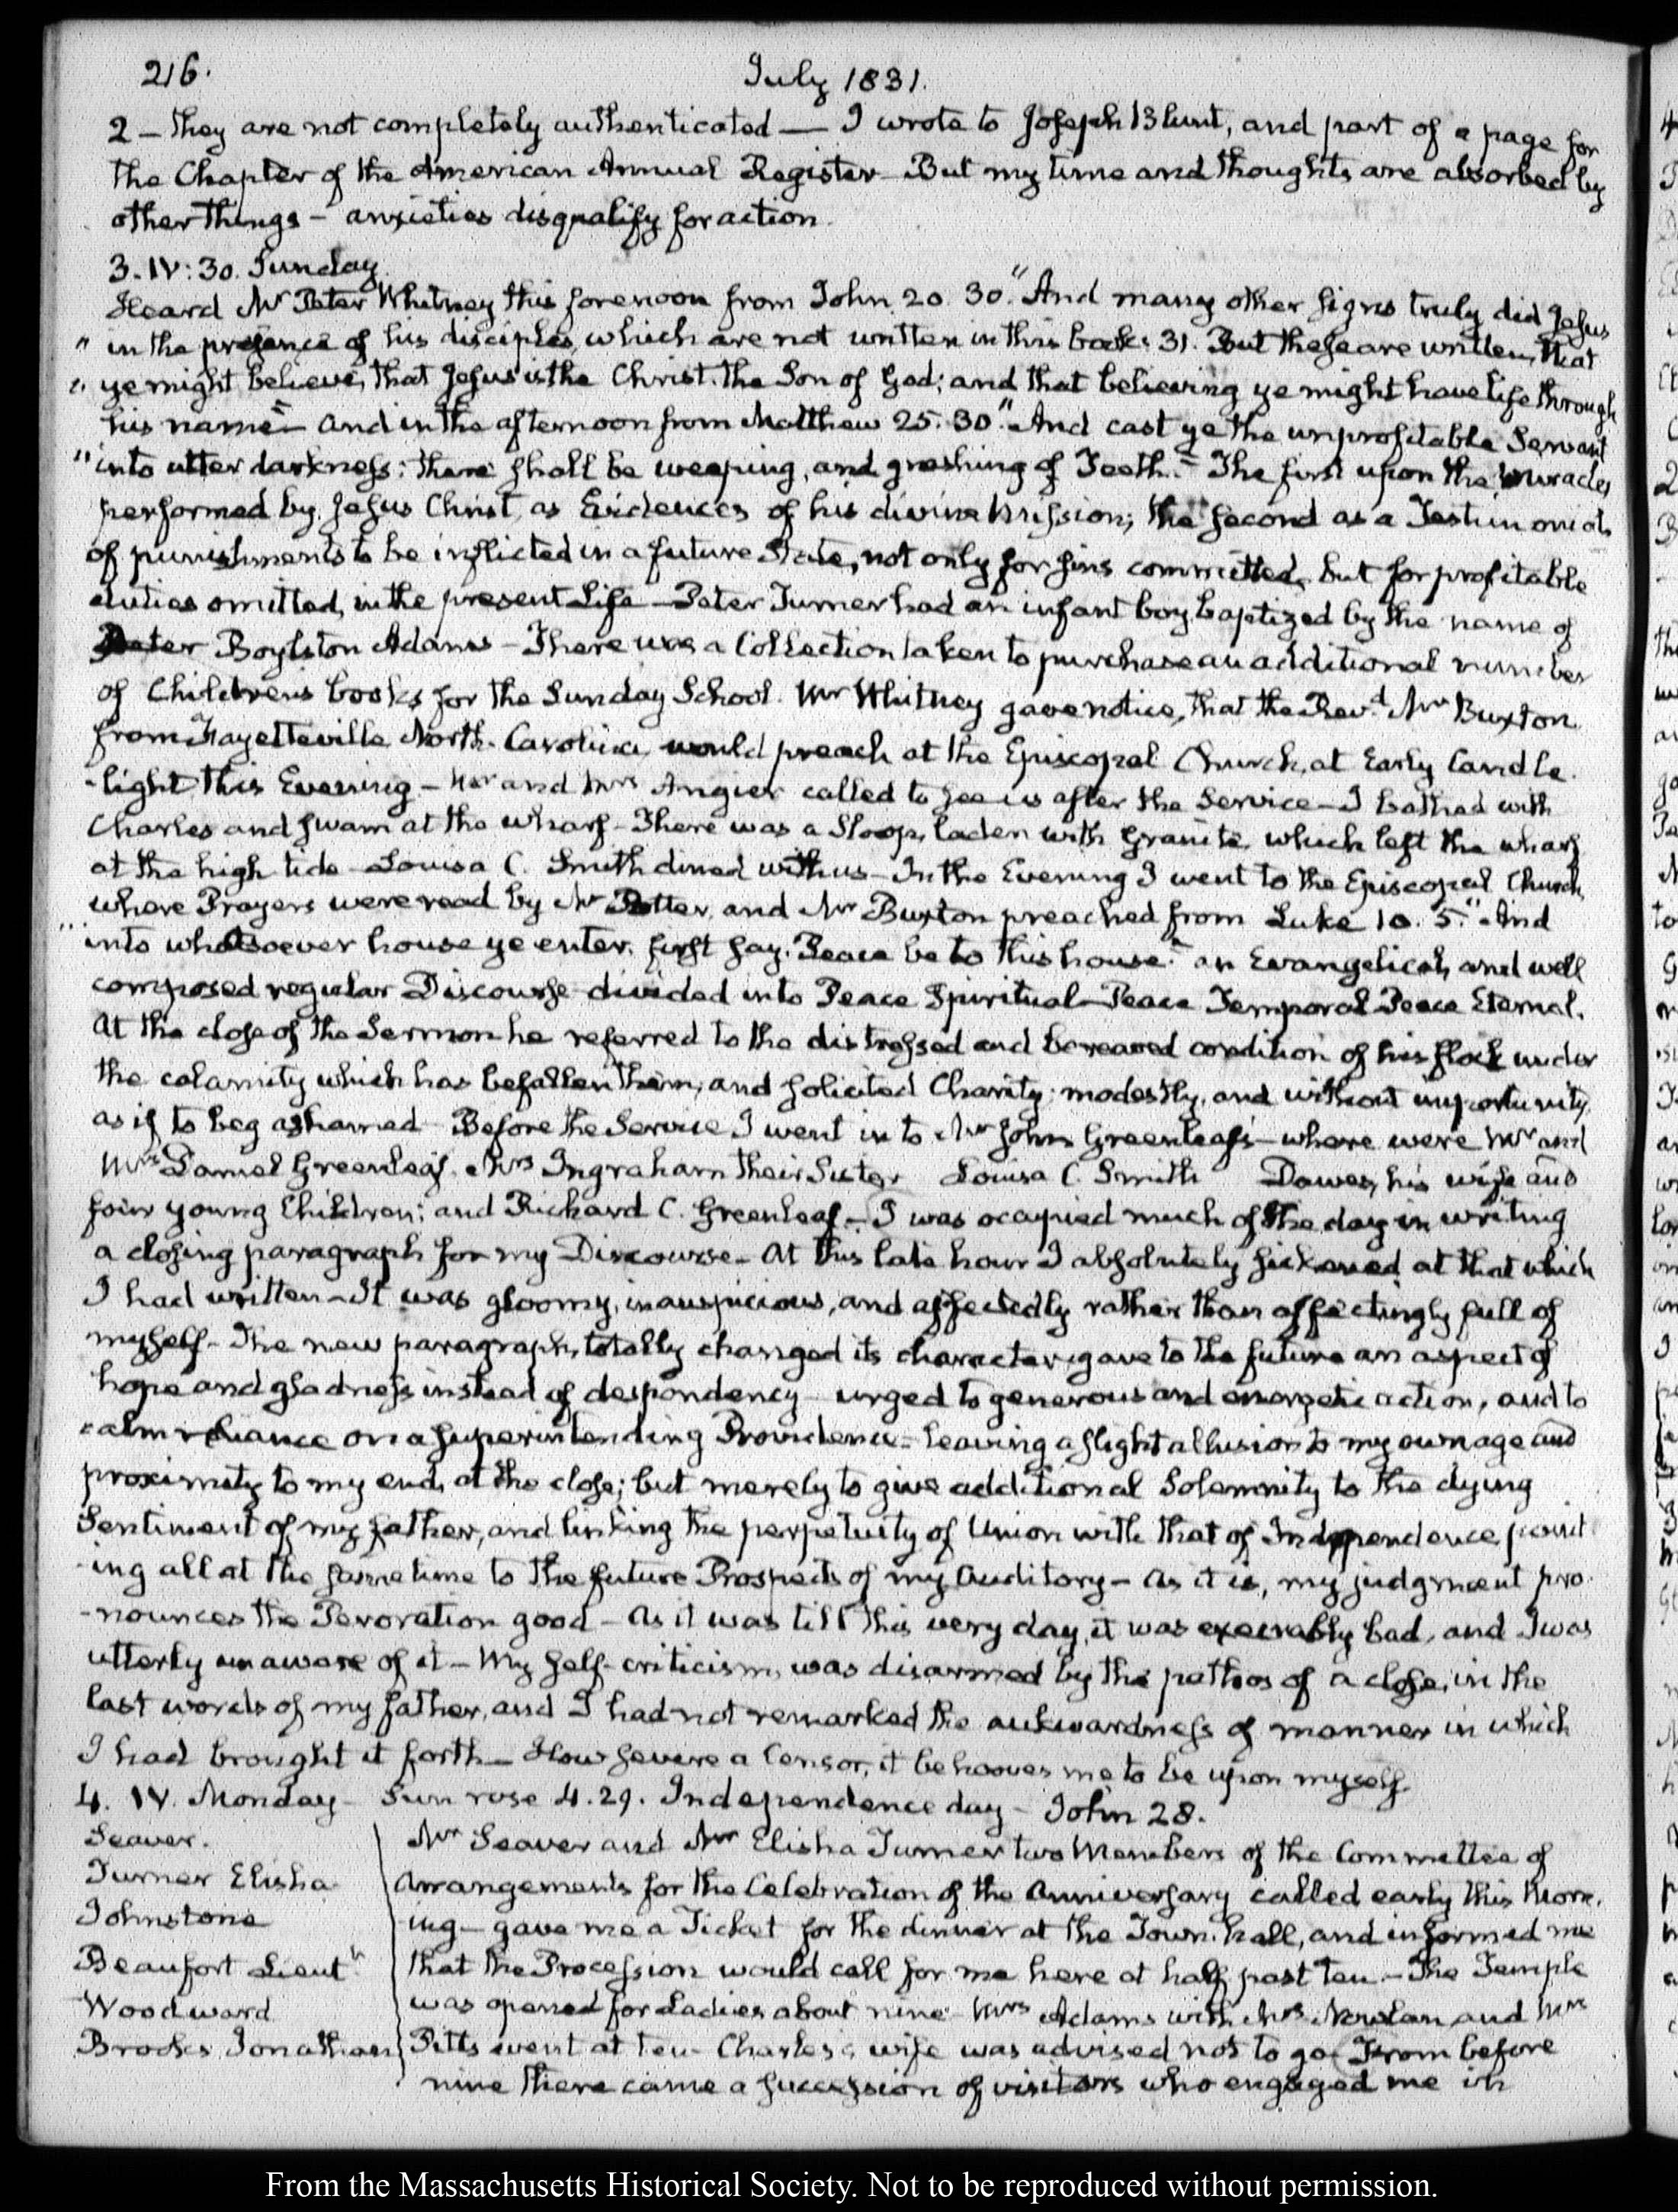 216.
July 1831.
2 – they are not completely authenticated — I wrote to Joseph Blunt, and part of a page for
the Chapter of the American Annual Register – But my time and thoughts are absorbed by
other things – anxieties disqualify for action.
3. IV: 30. Sunday.
Heard Mr Peter Whitney this forenoon from John 20. 30. "And many other signs truly did Jesus
" in the presence of his disciples, which are not written in this book: 31. But these are written, that
" ye might believe, that Jesus is the Christ, the Son of God; and that believing ye might have life through
his name" – and in the afternoon from Matthew 25. 30. "And cast ye the unprofitable Servant
" into utter darkness: there shall be weeping, and gnashing of Teeth." – The first upon the miracles
performed by Jesus Christ, as Evidences of his divine Mission; the second as a Testimonial
of punishments to be inflicted in a future State, not only for sins committed, but for profitable
duties omitted, in the present Life – Peter Turner had an infant boy baptized by the name of
Peter Boylston Adams – There was a Collection taken to purchase an additional number
of Children's books for the Sunday School. Mr Whitney gave notice, that the Revd. Mr Buxton
from Fayetteville North-Carolina would preach at the Episcopal Church, at Early Candle
-light this Evening – Mr and Mrs Angier called to see us after the Service – I bathed with
Charles and swam at the wharf – There was a Sloop, laden with Granite, which left the wharf
at the high tide – Louisa C. Smith dined with us – In the Evening I went to the Episcopal Church,
where Prayers were read by Mr Potter, and Mr Buxton preached from Luke 10. 5. "And
" into whatsoever house ye enter, first say, Peace be to this house." an Evangelical, and well
composed regular Discourse divided into Peace Spiritual – Peace Temporal Peace Eternal.
At the close of the Sermon he referred to the distressed and bereaved condition of his flock under
the calamity which has befallen them, and solicited Charity; modestly, and without importunity,
as if to beg ashamed – Before the Service I went in to Mr John Greenleaf's – where were Mr and
Mrs Daniel Greenleaf, Mrs Ingraham their Sister Louisa C. Smith Dawes, his wife and
four young Children; and Richard C. Greenleaf – I was ocupied much of the day in writing
a closing paragraph for my Discourse – At this late hour I absolutely sickened at that which
I had written – It was gloomy, inauspicious, and affectedly rather than affectingly full of
myself – The new paragraph, totally changed its character, gave to the future an aspect of
hope and gladness instead of despondency – urged to generous and energetic action, and to
calm reliance on a superintending Providence – Leaving a slight allusion to my own age and
proximity to my end, at the close; but merely to give additional Solemnity to the dying
Sentiment of my father, and linking the perpetuity of Union with that of Independence, point
-ing all at the same time to the future Prospects of my Auditory – As it is, my judgment pro-
-nounces the Peroration good – As it was till this very day, it was execrably bad, and I was
utterly unaware of it – My self-criticism, was disarmed by the pathos of a close, in the
last words of my father, and I had not remarked the aukwardness of manner in which
I had brought it forth – How severe a Censor, it behooves me to be upon myself.
4. IV. Monday – Sun rose 4.29. Independence day – John 28.
Seaver.
Turner Elisha
Johnstone
Beaufort Lieut.
Woodward
Brooks Jonathan
Mr Seaver and Mr Elisha Turner two Members of the Committee of
Arrangements for the Celebration of the Anniversary called early this Morn-
ing – gave me a Ticket for the dinner at the Town-hall, and informed me
that the Procession would call for me here at half past ten – The Temple
was opened for Ladies about nine – Mrs Adams with Mrs Nowlan and Mrs
Pitts went at ten – Charles's wife was advised not to go – From before
nine there came a succession of visitors who engaged me in
From the Massachusetts Historical Society. Not to be reproduced without permission.